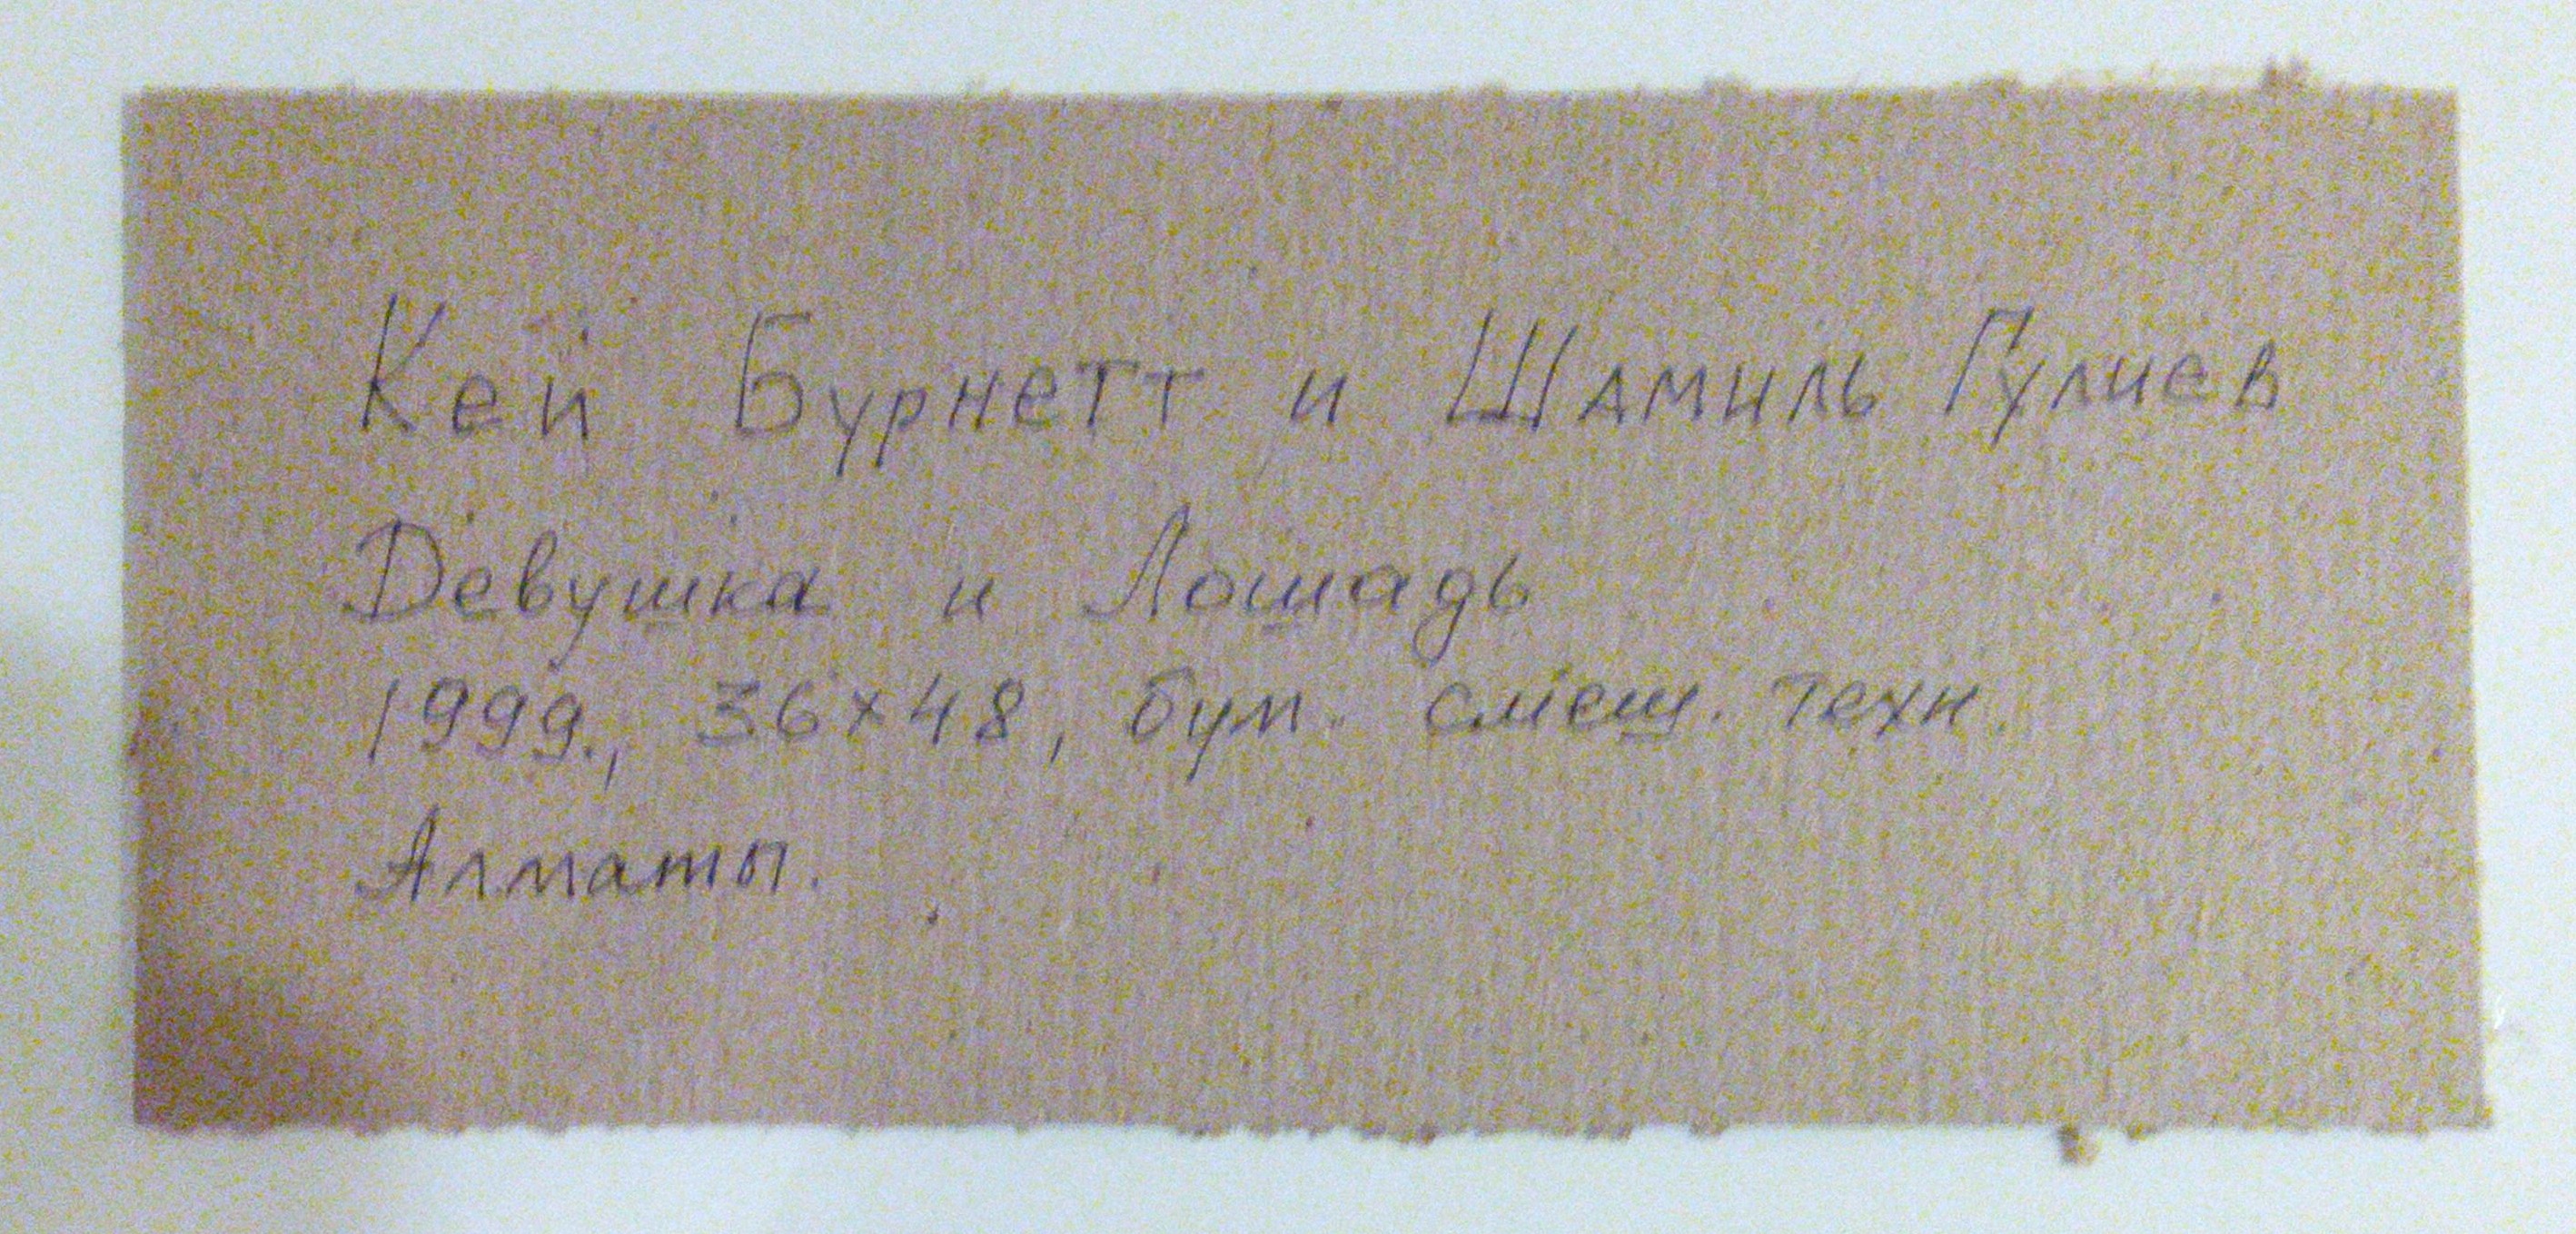 Кей Бурнетт и Шамиль Гулиев
Девушка и Лошадь
1999., 36х48, бум. смеш. техн.
Алматы.